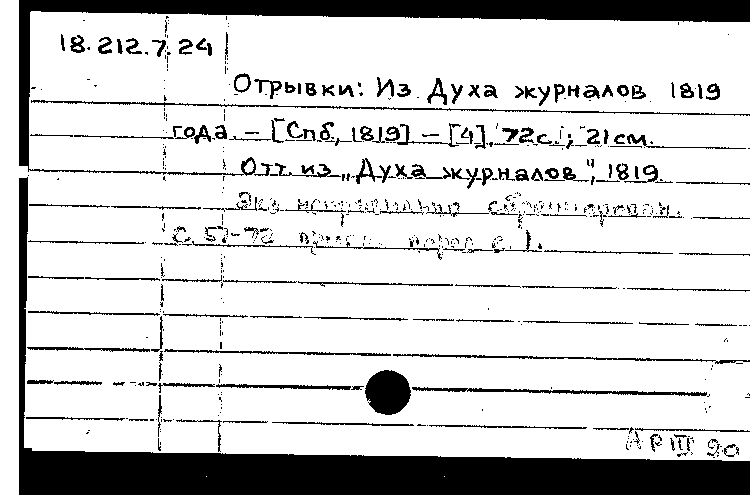 18.212.7.24
Отрывки: Из Духа журналов 1819
года. – [Спб, 1819] – [4], 72с.; 21см.
Отт. из „Духа журналов", 1819.
Экз неправильно сброшюрован.
С. 57-72 перед с. 1.
АР III 90